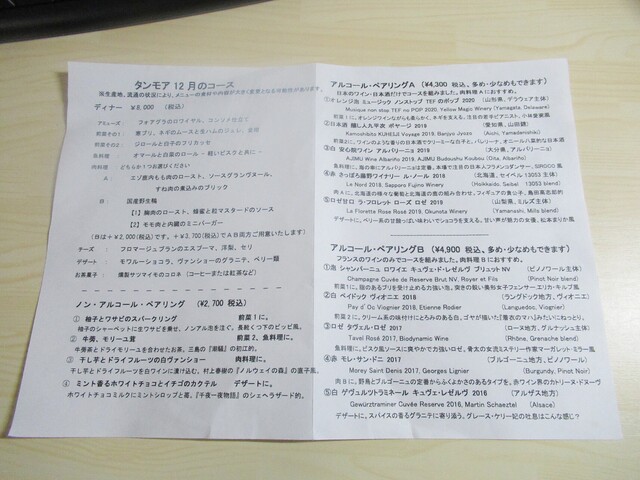 タンモア 12月のコース
※生産地、流通の状況により、メニューの素材や内容が大きく変更となる可能性があります。
ディナー ¥8,000 (税込)
アミューズ： フォアグラのロワイヤル、コンソメ仕立て
前菜その1： 寒ブリ、ネギのムースと生ハムのジュレ、
前菜その2： ジロールと白子のフリカッセ
魚料理 オマールと白菜のロール - 軽いビスクと共に -
肉料理 どちらか1つお選びください
A: エゾ鹿内もも肉のロースト、ソースグランヴヌール、
すね肉の煮込みのブリック
B: 国産野生雉
【1】胸肉のロースト、蜂蜜と粒マスタードのソース
【2】モモ肉と内臓のミニバーガー
(Bは+¥2,000(税込)です。+¥3,700(税込)でAB両方ご用意いたします)
チーズ： フロマージュブランのエスプーマ、洋梨、セリ
デザート： モワルーショコラ、ヴァンショーのグラニテ、ベリー類
お茶菓子： 燻製サツマイモのコロネ (コーヒーまたは紅茶など)
ノン・アルコール・ペアリング (¥2,700 税込)
① 柚子とワサビのスパークリング 前菜1に。
柚子のシャーベットに生ワサビを乗せ、ノンアル泡を注ぐ。長靴くつ下のピッピ風。
② 牛蒡、モリーユ茸 前菜2、魚料理に。
牛蒡茶とドライモリーユを合わせたお茶。三島の『潮騒』の初江に。
③ 干し芋とドライフルーツの白ヴァンショー 肉料理に。
干し芋とドライフルーツを白ワインに漬け込む。村上春樹の『ノルウェイの森』の直子風。
④ ミント香るホワイトチョコとイチゴのカクテル デザートに。
ホワイトチョコミルクにミントシロップと苺。『千夜一夜物語』のシェヘラザード的。
アルコール・ペアリングA (¥4,300 税込、多め・少なめもできます)
日本のワイン・日本酒だけでコースを組みました。肉料理Aにおすすめ。
①オレンジ泡 ミュージック ノンストップ TEFのポップ 2020 (山形県、デラウェア主体)
Musique non stop TEF no POP 2020, Yellow Magic Winery (Yamagata, Delaware)
前菜1に。オレンジワインがなら、ネギを支える。注目の若手ピアニスト、小林愛実風
②日本酒 醸し人九平次 ボヤージ 2019 (愛知県、山田錦)
Kamoshibito KUHEIJI Voyage 2019, Banjyo Jyozo (Aichi, Yamadanishiki)
前菜2に。ワインのような香りの日本酒でクリーミーな白子と。バレリーナ、オニール八菜的な日本酒
③白 安心院ワイン アルバリーニョ 2018 (大分県、アルバリーニョ)
AJIMU Wine Albariño 2019, AJIMU Budoushu Koubou (Oita, Albariño)
魚料理に。
④赤 さっぽろ藤野ワイナリー ル・ノール 2018 (北海道、セイベル 13053 主体)
Le Nord 2018, Sapporo Fujino Winery (Hokkaido, Seibel 13053 blend)
肉Aに。北海道の様々な葡萄と北海道の鹿の組み合わせ。フィギュアの貴公子、島田高志郎的
⑤ロゼ甘口 ラ・フロレット ローズ ロゼ 2019 (山梨県、ミルズ主体)
La Florette Rose Rosé 2019, Okunota Winery (Yamanashi, Mills blend)
デザートに。ベリー系の香り豊かで甘い味わいでショコラを支える。甘い声が魅力の女優、松本まりか風
アルコール・ペアリングB (¥4,900 税込、多め・少なめもできます)
フランスのワインのみでコースを組みました。肉料理Bにおすすめ。
①泡 シャンパーニュ ロワイエ キュヴェ・ド・レゼルヴ ブリュット NV (ピノノワール主体)
Champagne Cuvée de Reserve Brut NV, Royer et Fils (Pinot Noir blend)
前菜1に。脂のあるブリを受け止める力強い泡。突きの鋭い美形女子フェンサー エリ・キルブ風
②白 ペイドック ヴィオニエ 2018 (ラングドック地方、ヴィオニエ)
Pay d'Oc Viognier 2018, Etienne Rodier (Languedoc, Viognier)
前菜2に。クリーム系の味付けにとろみのある白。ゴヤが描いた『着衣のマハ』みたいにとろっと。
③ロゼ タヴェル・ロゼ 2017 (ローヌ地方、グルナッシュ主体)
Tavel Rosé 2017, Biodynamic Wine (Rhône, Grenache blend)
魚料理に。ビスク風ソースに爽やかで力強いロゼ。骨太の女流ミステリー作家マーガレット ミラー風
④赤 モレ・サン・ドニ 2017 (ブルゴーニュ地方、ピノノワール)
Morey Saint Denis 2017, Georges Lignier (Burgundy, Pinot Noir)
肉Bに。野鳥とブルゴーニュの定番からふくよかさのあるタイプを。赤ワイン界のカトリーヌ・ドヌーヴ
⑤白 ゲヴュルツトラミネール キュヴェ・レゼルヴ 2016 (アルザス地方)
Gewürztraminer Cuvée Reserve 2016, Martin Schaeztel (Alsace)
デザートに、スパイスの香るグラニテに寄り添う。グレース・ケリー妃の吐息はこんな感じ?